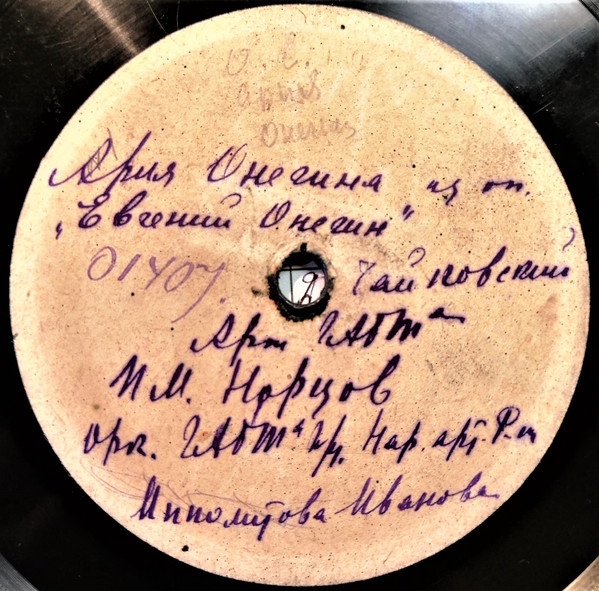 О. Е.
Ария
Онегин
Ария Онегина из оп.
„Евгений Онегин"
01407. Чайковский
Арт. ГАБТа
П.М. Норцов
орк. ГАБТа п/у. Нар. арт. Р-ки
Ипполитова-Иванова